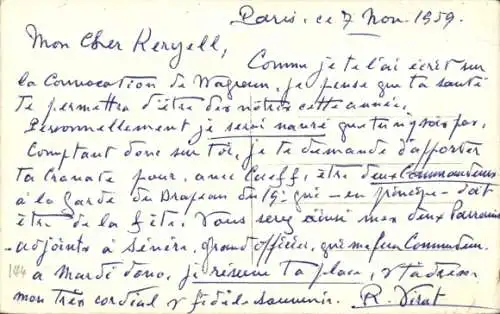 Paris, ce 7 Nov. 1959.
Mon Cher Keryell,
Comme je te l'ai écrit sur
la Convocation de Wagram, je pense que ta santé
te permettra d'être des nôtres cette année.
Personnellement je serai navré que tu n'y sois pas.
Comptant donc sur toi, je te demande d'apporter
ta Cravate pour, avec Cueff, être deux Commandeurs
à la Garde du Drapeau du 19e qui – en principe – doit
être de la fête. Vous serez ainsi mes deux Parrains
adjoints à Sénéri, grand officier, qui me fera Commandeur.
144 a Mardi donc, je réserve ta place, et t'adresse
mon très cordial et fidèle souvenir. R. Virat